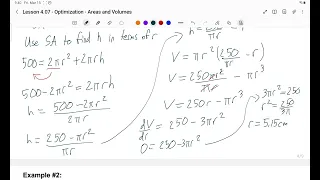 Lesson 4.07 - Optimization - Areas and Volumes
Use SA to find h in terms of r
500 = 2πr² + 2πrh
500 - 2πr² = 2πrh
h = 500 - 2πr² / 2πr
h = 250 - πr² / πr
V = πr² (250 / πr - r)
V = 250πr² / πr - πr³
V = 250r - πr³
dV/dr = 250 - 3πr²
0 = 250 - 3πr²
3πr² = 250
r² = 250 / 3π
r = 5.15cm
Example #2: